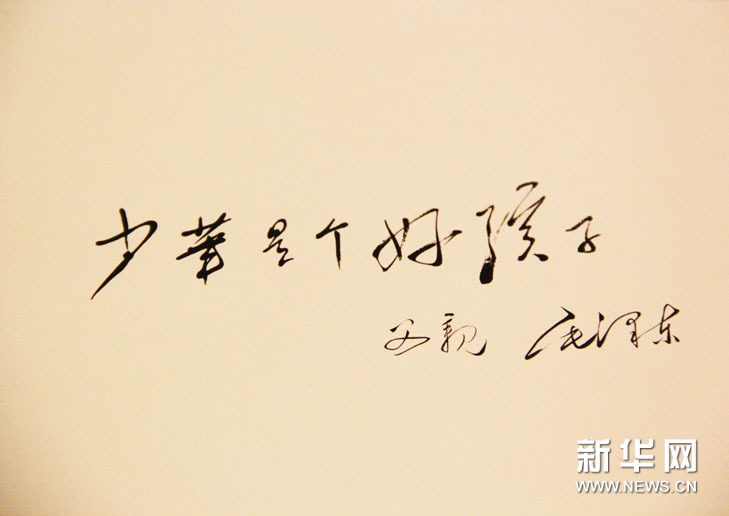 少華是个好孩子
父親 毛泽东
新华网
WWW.NEWS.CN